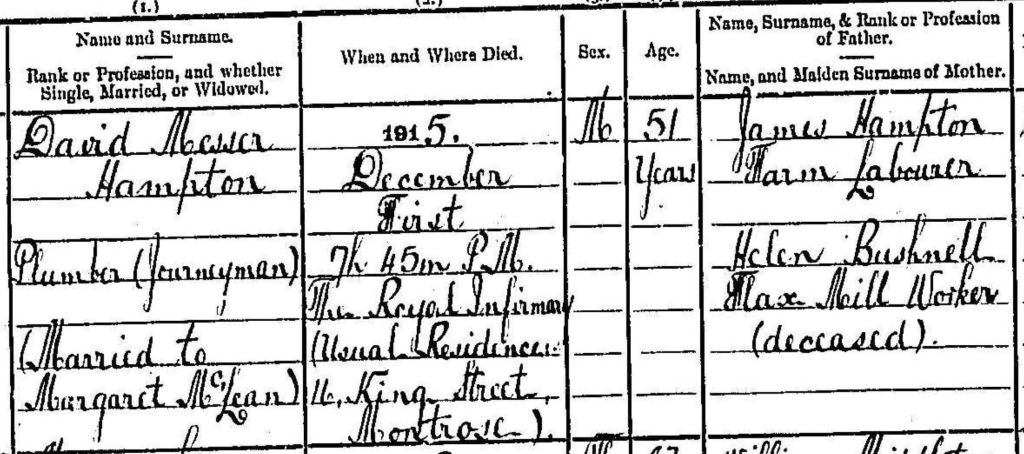 (1.)
Name and Surname.
Rank or Profession, and whether
Single, Married, or Widowed.
David Messer
Hampton
Plumber (Journeyman)
(Married to
Margaret McLean)
When and Where Died.
1915.
December
First
7h 45m P.M.
The Royal Infirmary
(Usual Residence:
King Street,
Montrose).
Sex.
M
Age.
51
Years
Name, Surname, & Rank or Profession
of Father.
Name, and Maiden Surname of Mother.
James Hampton
Farm Labourer
Helen Bushnell
Flax Mill Worker
(deceased).